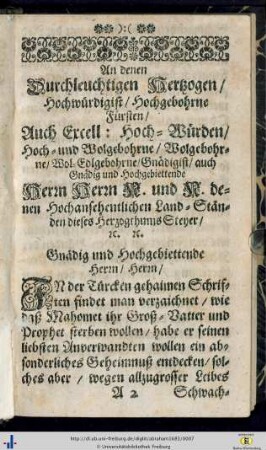 ):(
An denen
Durchleuchtigen Hertzogen /
Hochwürdigist / Hochgebohrne
Fürsten /
Auch Excell: Hoch-Würden /
Hoch- und Wolgebohrne / Wolgebohr-
ne / Wol-Edlgebohrne / Gnädigist / auch
Gnädig und Hochgebiettende
Herrn Herrn N. und N. de-
nen Hochansehentlichen Land-Stän-
den dieses Hertzogthums Steyer /
ꝛc. ꝛc.
Gnädig und Hochgebiettende
Herrn / Herrn /
IN der Türcken gehaimen Schrif-
ten findet man verzaichnet / wie
daß Mahomet ihr Groß-Vatter und
Prophet sterben wollen / habe er seinen
liebsten Anverwandten wollen ein ab-
sonderliches Geheimnuß entdecken / sol-
ches aber / wegen allzugrosser Leibes
A 2 Schwach-
http://dl.ub.uni-freiburg.de/diglit/abraham1685/0007
© Universitätsbibliothek Freiburg